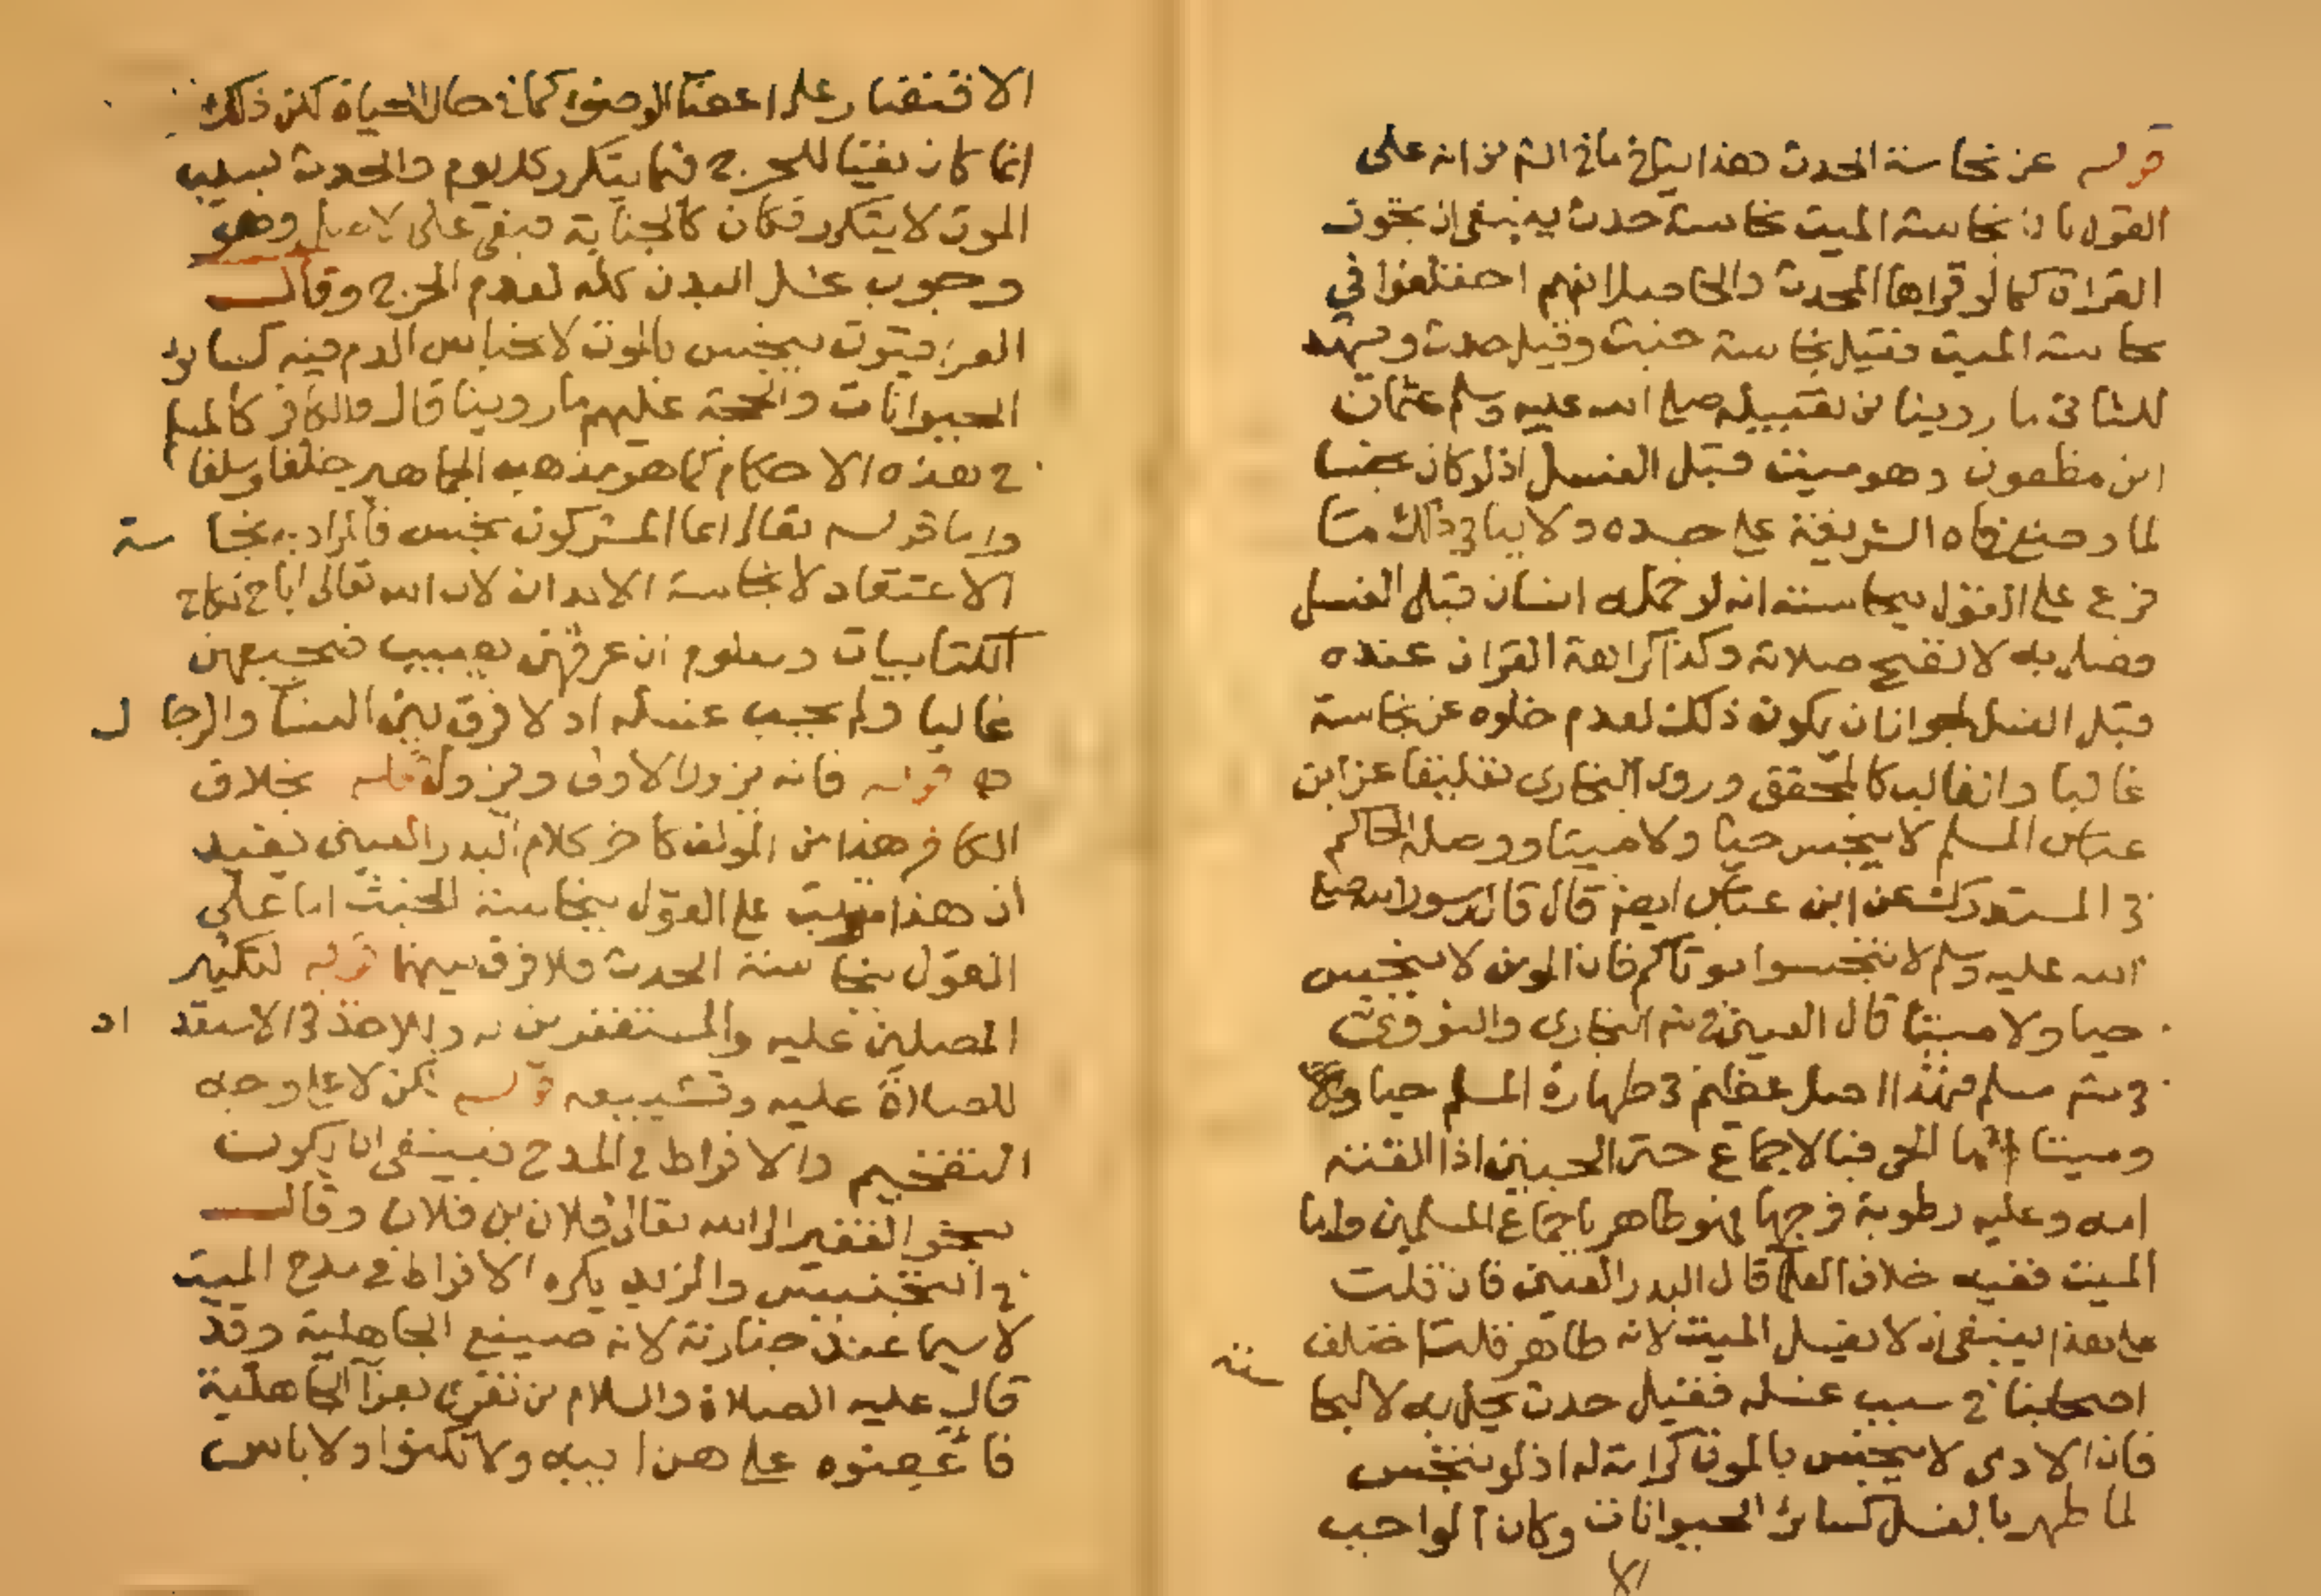 قوله عن نجاسة الحدث هذا ينافي ما في الشر من انه على
القول بان نجاسة الميت نجاسة حدث به ينبغي ان تجوز
القراة كما لو قراها المحدث والحاصل انهم اختلفوا في
نجاسة الميت فقيل نجاسة خبث وقيل حدث ويشهد
للثاني ما روينا من تقبيله صلى الله عليه وسلم عثمان
ابن مظعون وهو ميت قبل الغسل اذ لو كان نجسا
لما وضع فاه الشريفة على جسده ولا ينافي ذلك ما
فرع على القول بنجاسته انه لو حمله انسان قبل الغسل
فصلى به لا تصح صلاته وكذا كراهة القران عنده
قبل الغسل لجواز ان يكون ذلك لعدم خلوه عن نجاسة
غالبا والغالب كالمحقق وروى البخاري تعليقا عن ابن
عباس المسلم لا ينجس حيا ولا ميتا ووصله الحاكم
في المستدرك عن ابن عباس ايضا قال قال رسول الله صلى
الله عليه وسلم لا تنجسوا موتاكم فان المومن لا ينجس
حيا ولا ميتا قال العيني في شر البخاري والنووي
في شر مسلم فهذا اصل عظيم في طهارة المسلم حيا
وميتا اما الحي فبالاجماع حتى الجنين اذا القته
امه وعليه رطوبة فرجها فهو طاهر باجماع المسلمين واما
الميت ففيه خلاف العلما قال البدر العيني فان قلت
على هذا ينبغي ان لا يغسل الميت لانه طاهر قلت اختلف
اصحابنا في سبب غسله فقيل حدث يحل به لا لنجاسته
فان الادمى لا ينجس بالموت كرامة له اذ لو تنجس
لما طهر بالغسل كسائر الحيوانات وكان الواجب
الا
الاقتصار على اعضا الوضوء كما في حال الحياة لكن ذلك
انما كان نفيا للحرج فيما يتكرر كل يوم والحدث بسبب
الموت لا يتكرر فكان كالجنابة فبقي على الاصل وهو
وجوب غسل البدن كله لعدم الحرج وقال
العراقيون ينجس بالموت لاحتباس الدم فيه كسائر
الحيوانات والحجة عليهم ما روينا قال والكافر كالمسلم
في هذه الاحكام كما هو مذهب الجماهير خلفا وسلفا
واما قوله تعالى انما المشركون نجس فالمراد به نجاسة
الاعتقاد لا نجاسة الابدان لان الله تعالى اباح نكاح
الكتابيات ومعلوم ان عرقهن يصيب ضجيعهن
غالبا ولم يجب غسله اذ لا فرق بين النسا والرجال
قوله فانه يزول الاوفى ويزول قوله بخلاف
الكافر هذا من المولف كاخر كلام البدر العيني يفيد
ان هذا مرتب على القول بنجاسة الخبث اما على
القول بنجاسة الحدث فلا فرق بينهما قوله لتكثير
المصلين عليه والمستغفرين له وللاخذ في الاستعداد
للصلاة عليه وتشييعه قوله لكن لا على وجه
التفخيم والافراط في المدح فينبغي ان يكون
بنحو الفقير الى الله تعالى فلان بن فلان وقال
في التجنيس والمزيد يكره الافراط في مدح الميت
لا سيما عند جنازته لانه صنيع الجاهلية وقد
قال عليه الصلاة والسلام من تعزى بعزا الجاهلية
فاعضوه على هن ابيه ولا تكنوا ولا باس